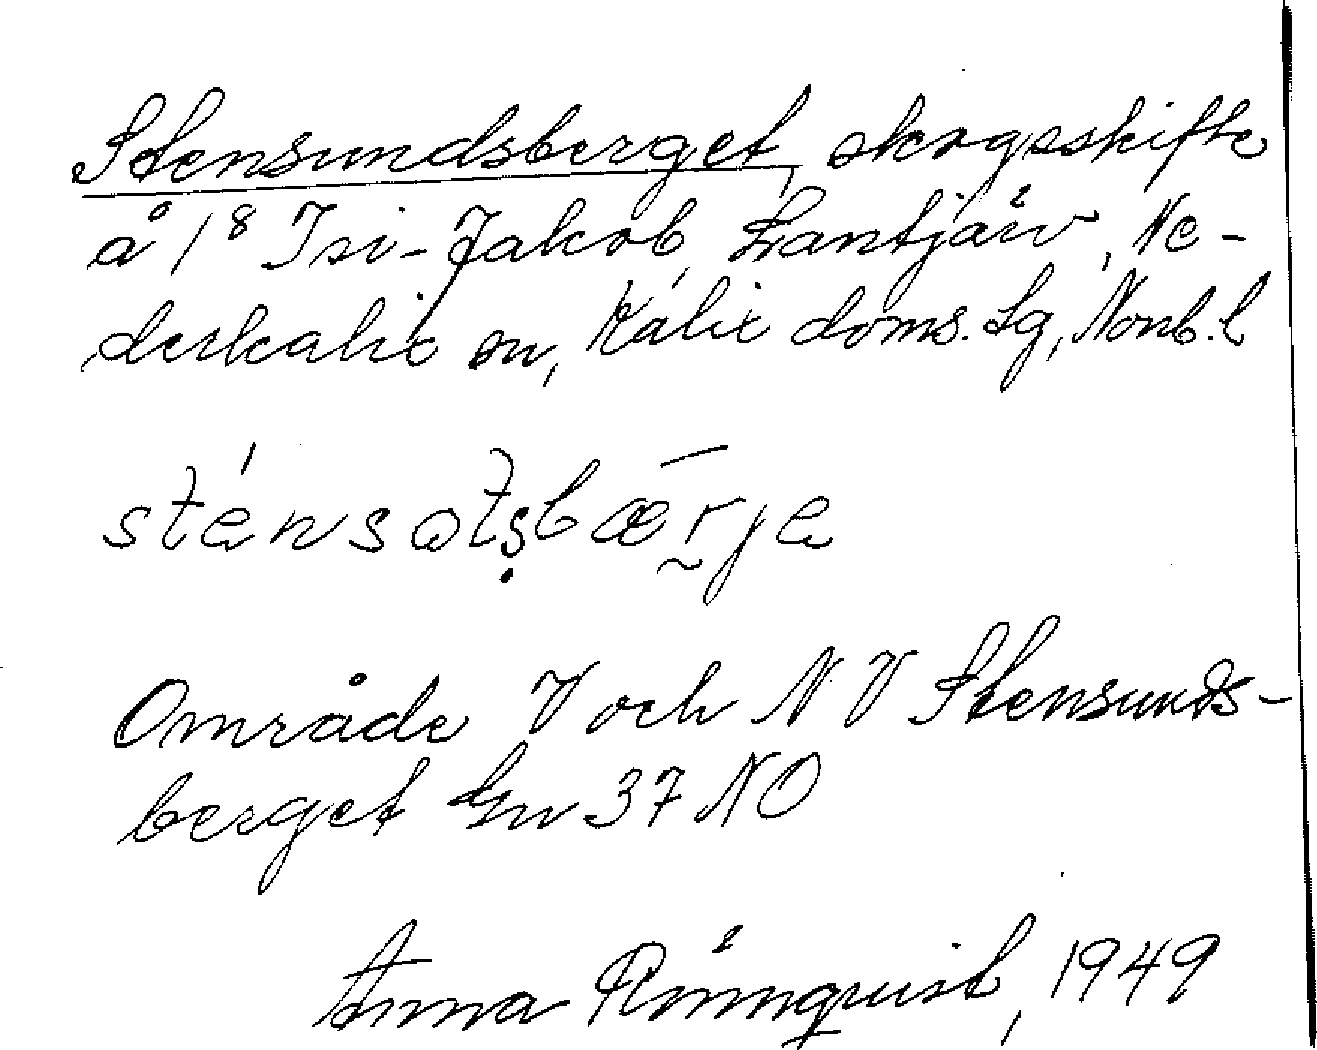 Stensundsberget, skogsskifte
å 1⁸ Isi-Jakob, Lantjärv, Ne-
derkalix sn, Kalix doms. lg, Norrb. l
sténsatsbærje
Område V och NV Stensunds-
berget Gn 37 NO
Anna Rönnqvist, 1949